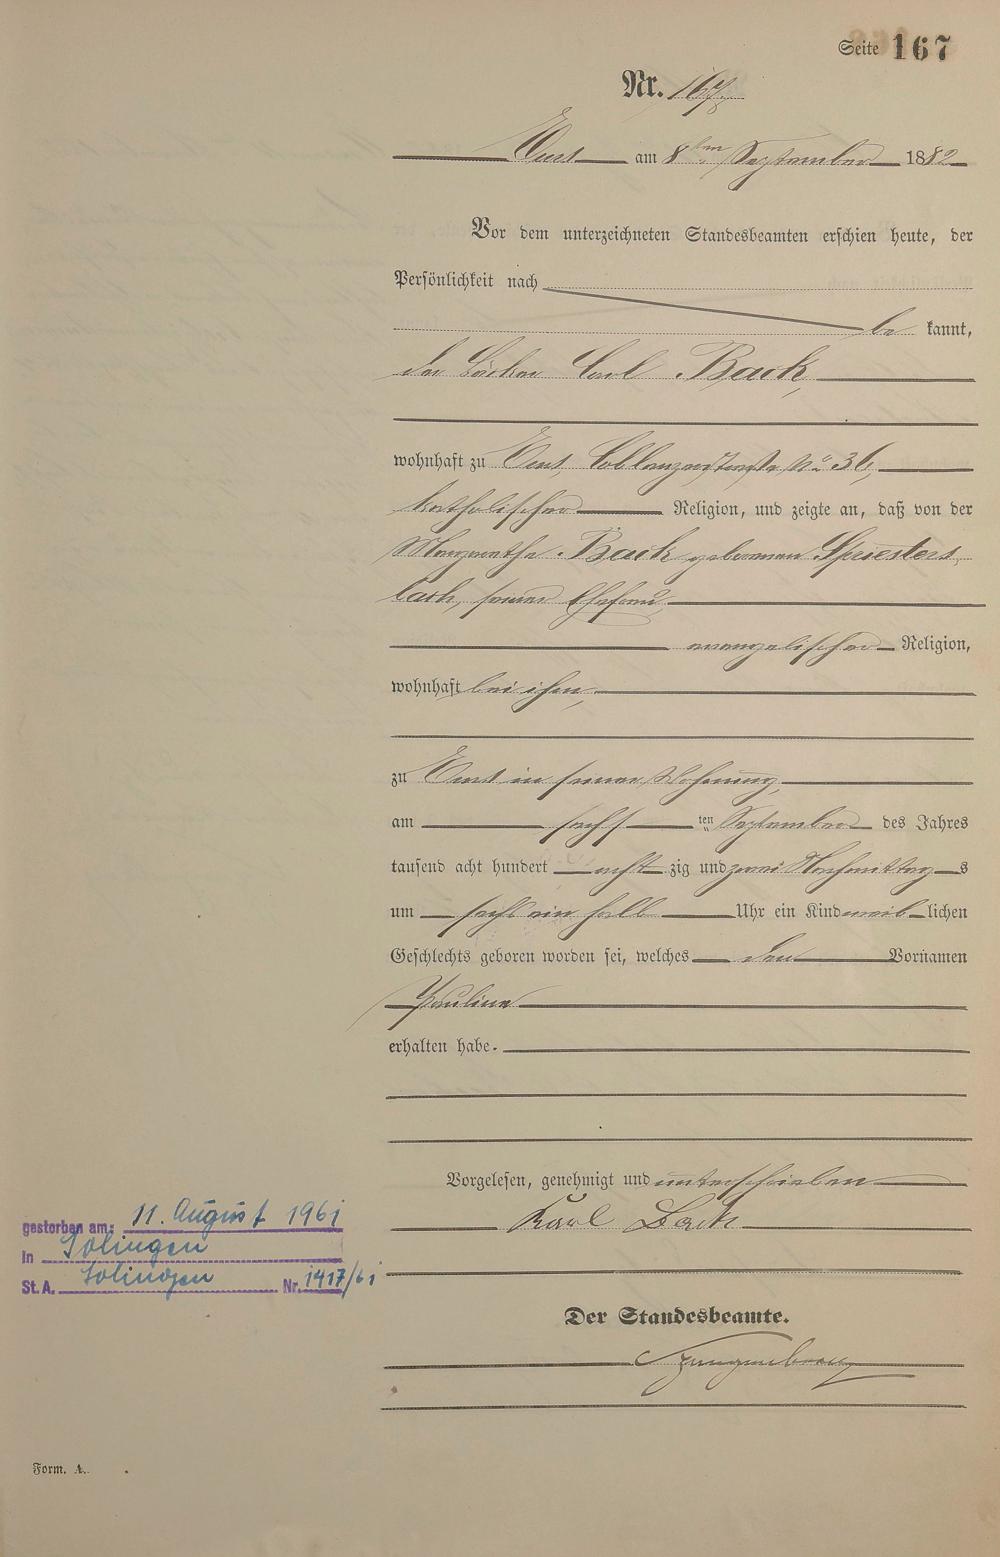 Seite 167
Nr. 167.
Ems am 8ten September 1882
Vor dem unterzeichneten Standesbeamten erschien heute, der
Persönlichkeit nach
be kannt,
der Bäcker Carl Back,
wohnhaft zu Ems, Coblenzerstraße No 36,
katholischer Religion, und zeigte an, daß von der
Margarethe Back geborenen Spriesters
bach, seiner Ehefrau,
evangelischer Religion,
wohnhaft bei ihm,
zu Ems in seiner Wohnung,
am sechs ten September des Jahres
tausend acht hundert acht zig und zwei Nachmittag s
um sechs ein halb Uhr ein Kind weib lichen
Geschlechts geboren worden sei, welches den Vornamen
Pauline
erhalten habe.
Vorgelesen, genehmigt und unterschrieben
Karl Back
Der Standesbeamte.
gestorben am: 11. August 1961
in Solingen
St. A. Solingen Nr. 1417/61
Form. A.